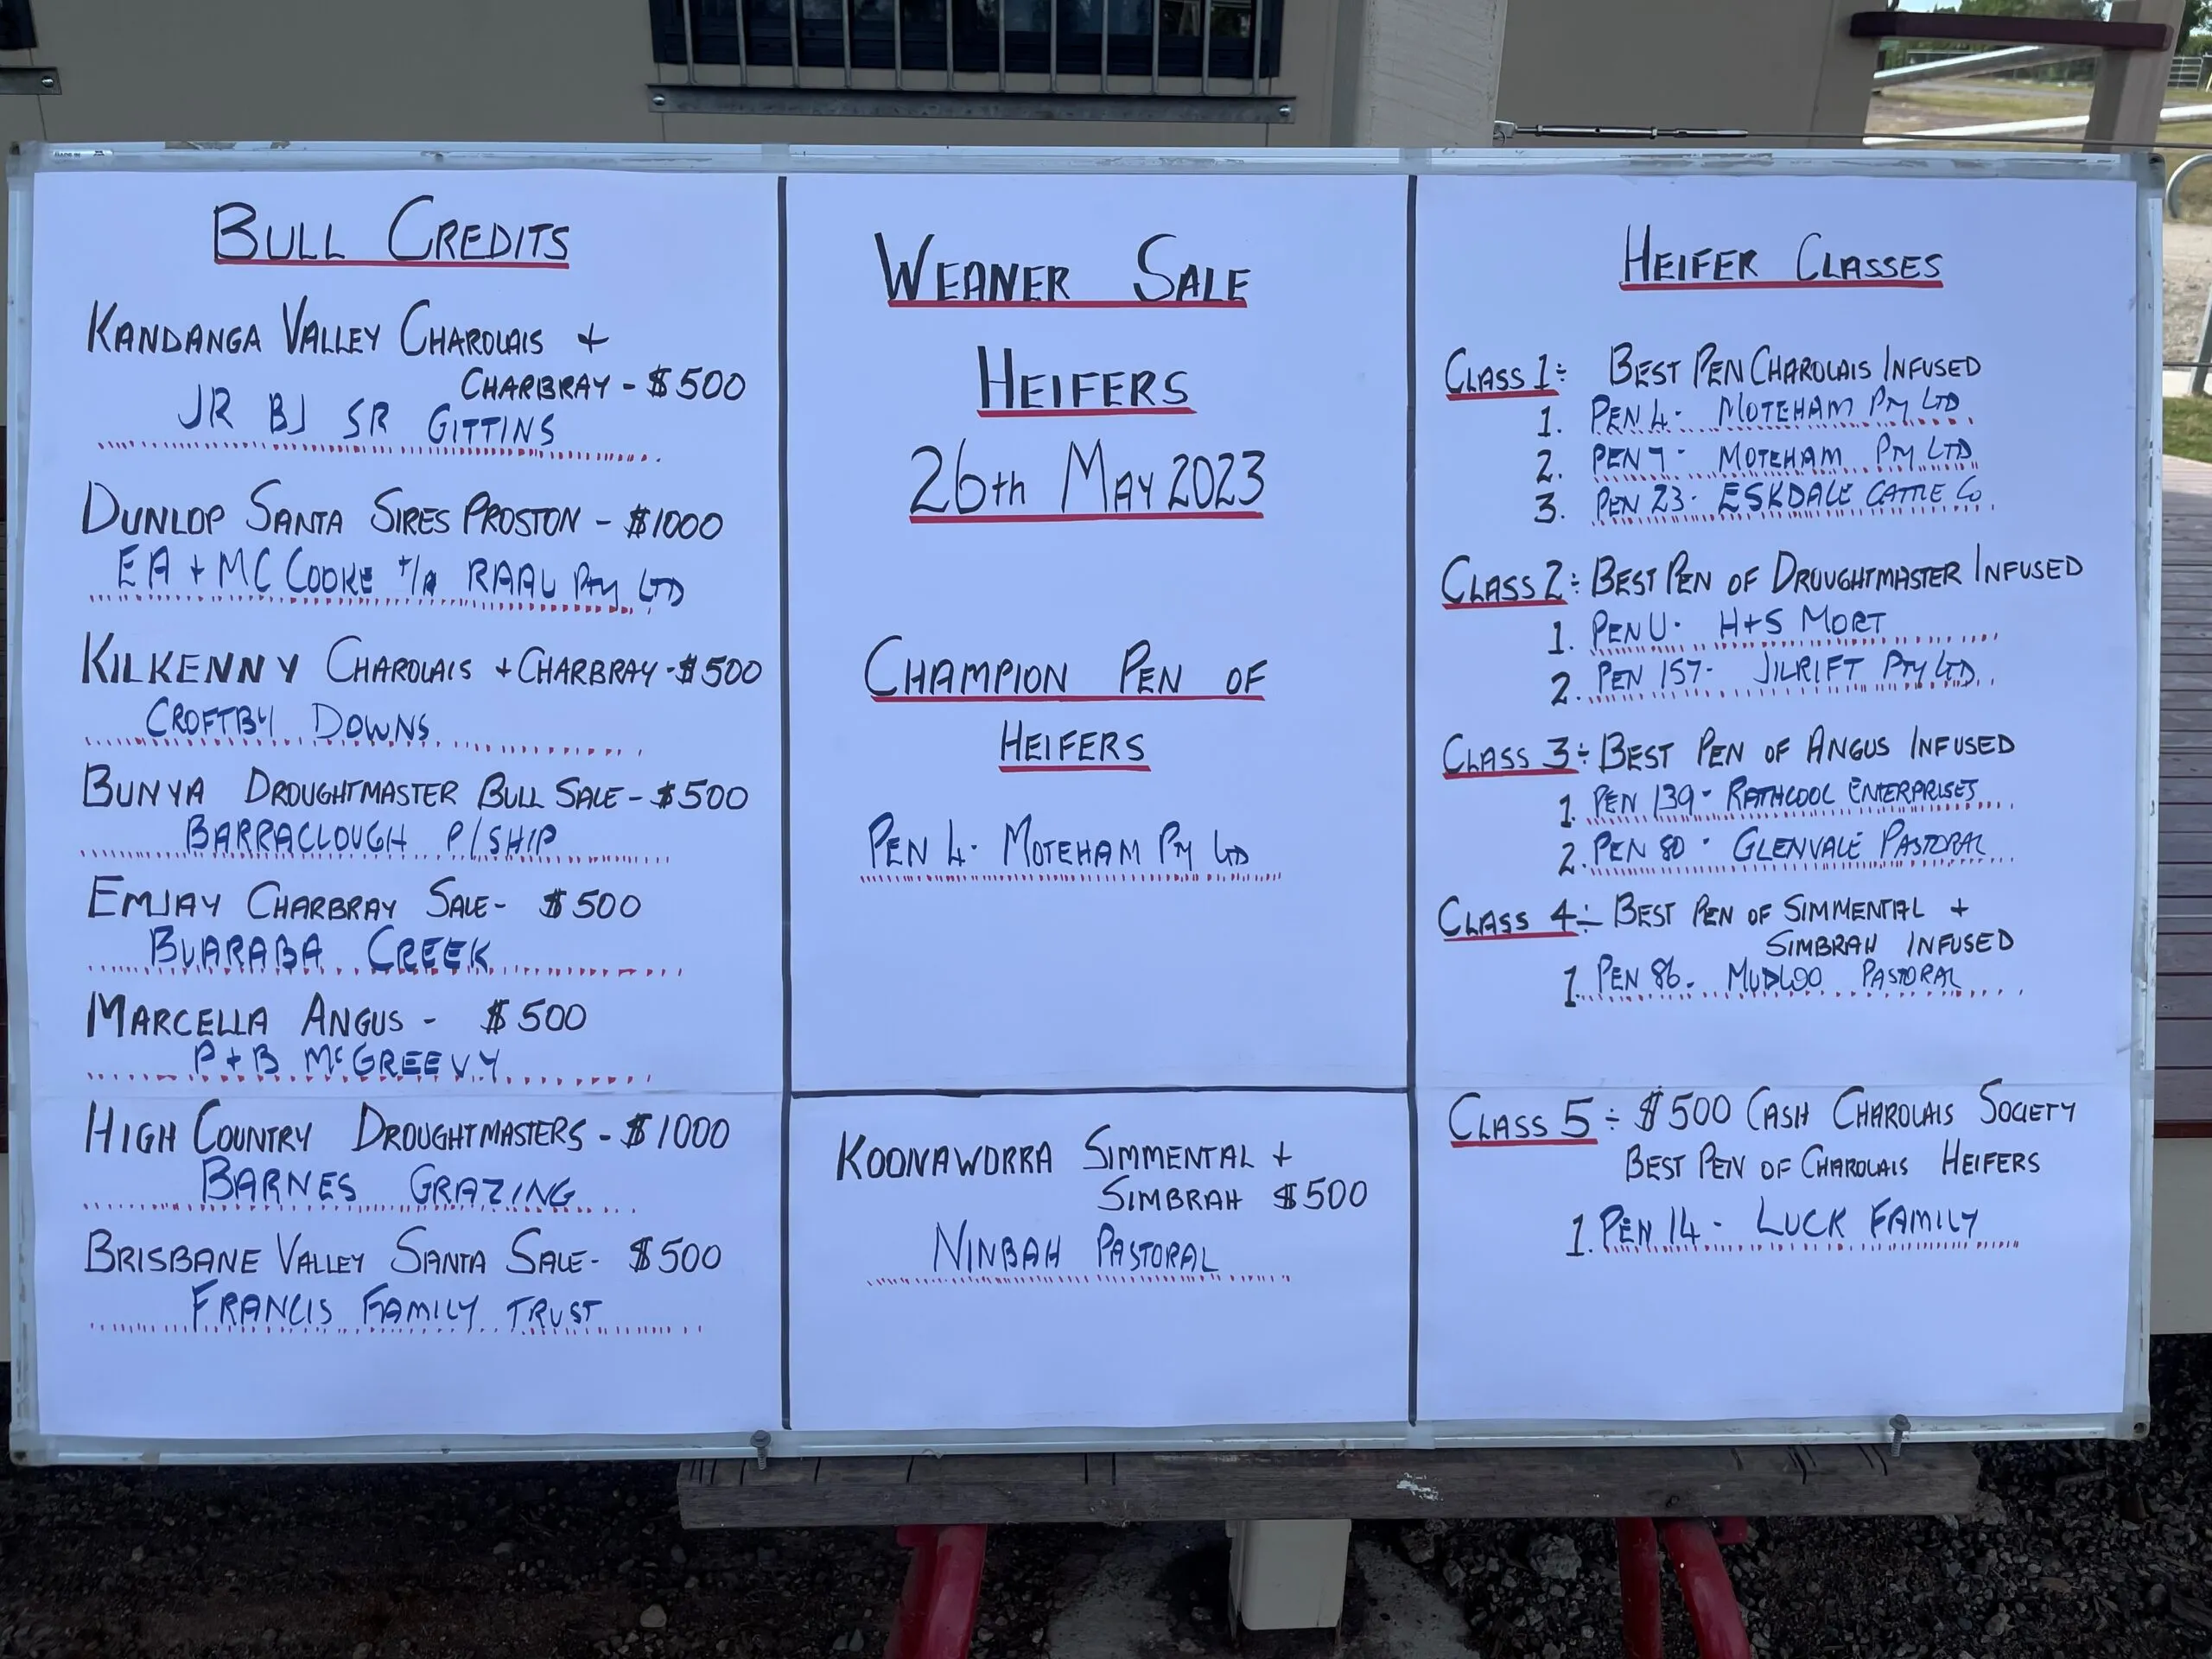 BULL CREDITS
KANDANGA VALLEY CHAROLAIS +
CHARBRAY - $500
JR BJ SR GITTINS
DUNLOP SANTA SIRES PROSTON - $1000
EA + MC COOKE T/A RAAL PTY LTD
KILKENNY CHAROLAIS + CHARBRAY - $500
CROFTBY DOWNS
BUNYA DROUGHTMASTER BULL SALE - $500
BARRACLOUGH P/SHIP
EMJAY CHARBRAY SALE - $500
BUARABA CREEK
MARCELLA ANGUS - $500
P + B McGREEVY
HIGH COUNTRY DROUGHTMASTERS - $1000
BARNES GRAZING
BRISBANE VALLEY SANTA SALE - $500
FRANCIS FAMILY TRUST
WEANER SALE
HEIFERS
26th MAY 2023
CHAMPION PEN OF
HEIFERS
PEN 4 - MOTEHAM PTY LTD
KOONAWORRA SIMMENTAL +
SIMBRAH $500
NINBAH PASTORAL
HEIFER CLASSES
CLASS 1 :- BEST PEN CHAROLAIS INFUSED
1. PEN 4 - MOTEHAM PTY LTD
2. PEN 7 - MOTEHAM PTY LTD
3. PEN 23 - ESKDALE CATTLE CO
CLASS 2 :- BEST PEN OF DROUGHTMASTER INFUSED
1. PEN U - H+S MORT
2. PEN 157 - JILRIFT PTY LTD
CLASS 3 :- BEST PEN OF ANGUS INFUSED
1. PEN 139 - RATHCOOL ENTERPRISES
2. PEN 80 - GLENVALE PASTORAL
CLASS 4 :- BEST PEN OF SIMMENTAL +
SIMBRAH INFUSED
1. PEN 86 - MUDLOO PASTORAL
CLASS 5 :- $500 CASH CHAROLAIS SOCIETY
BEST PEN OF CHAROLAIS HEIFERS
1. PEN 14 - LUCK FAMILY